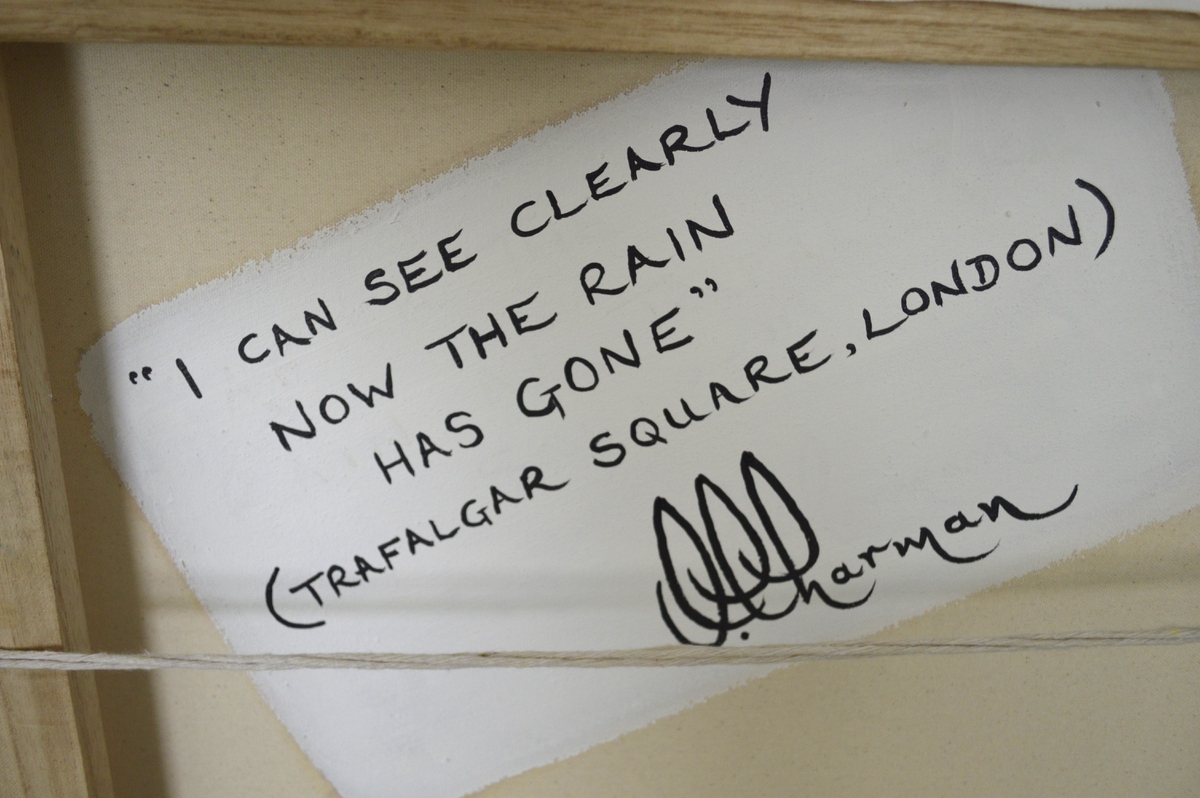 “I CAN SEE CLEARLY
NOW THE RAIN
HAS GONE”
(TRAFALGAR SQUARE, LONDON)